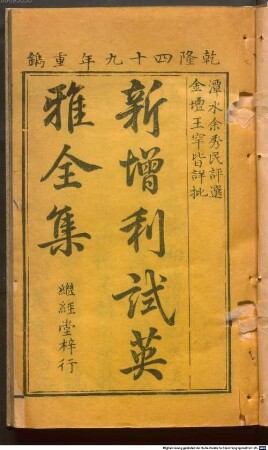 乾隆四十九年重鐫
潭水余秀民評選
金壇王罕皆詳批
新增利試英
雅全集
繼經堂梓行